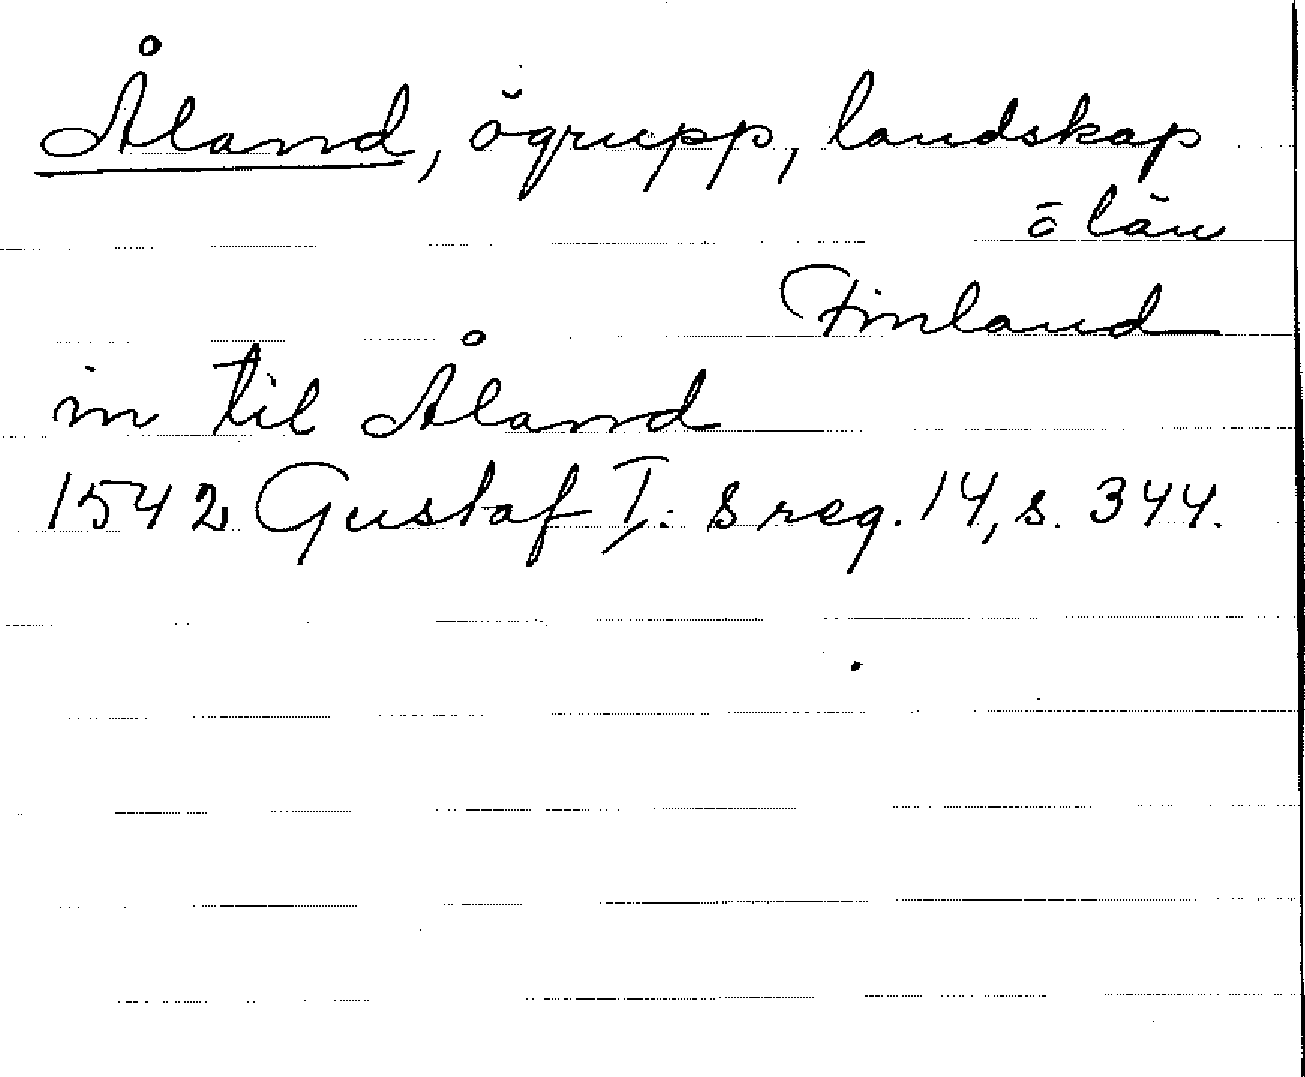 Åland, ögrupp, landskap
o län
Finland
in til Åland
1542 Gustaf I:s reg. 14, s. 344.